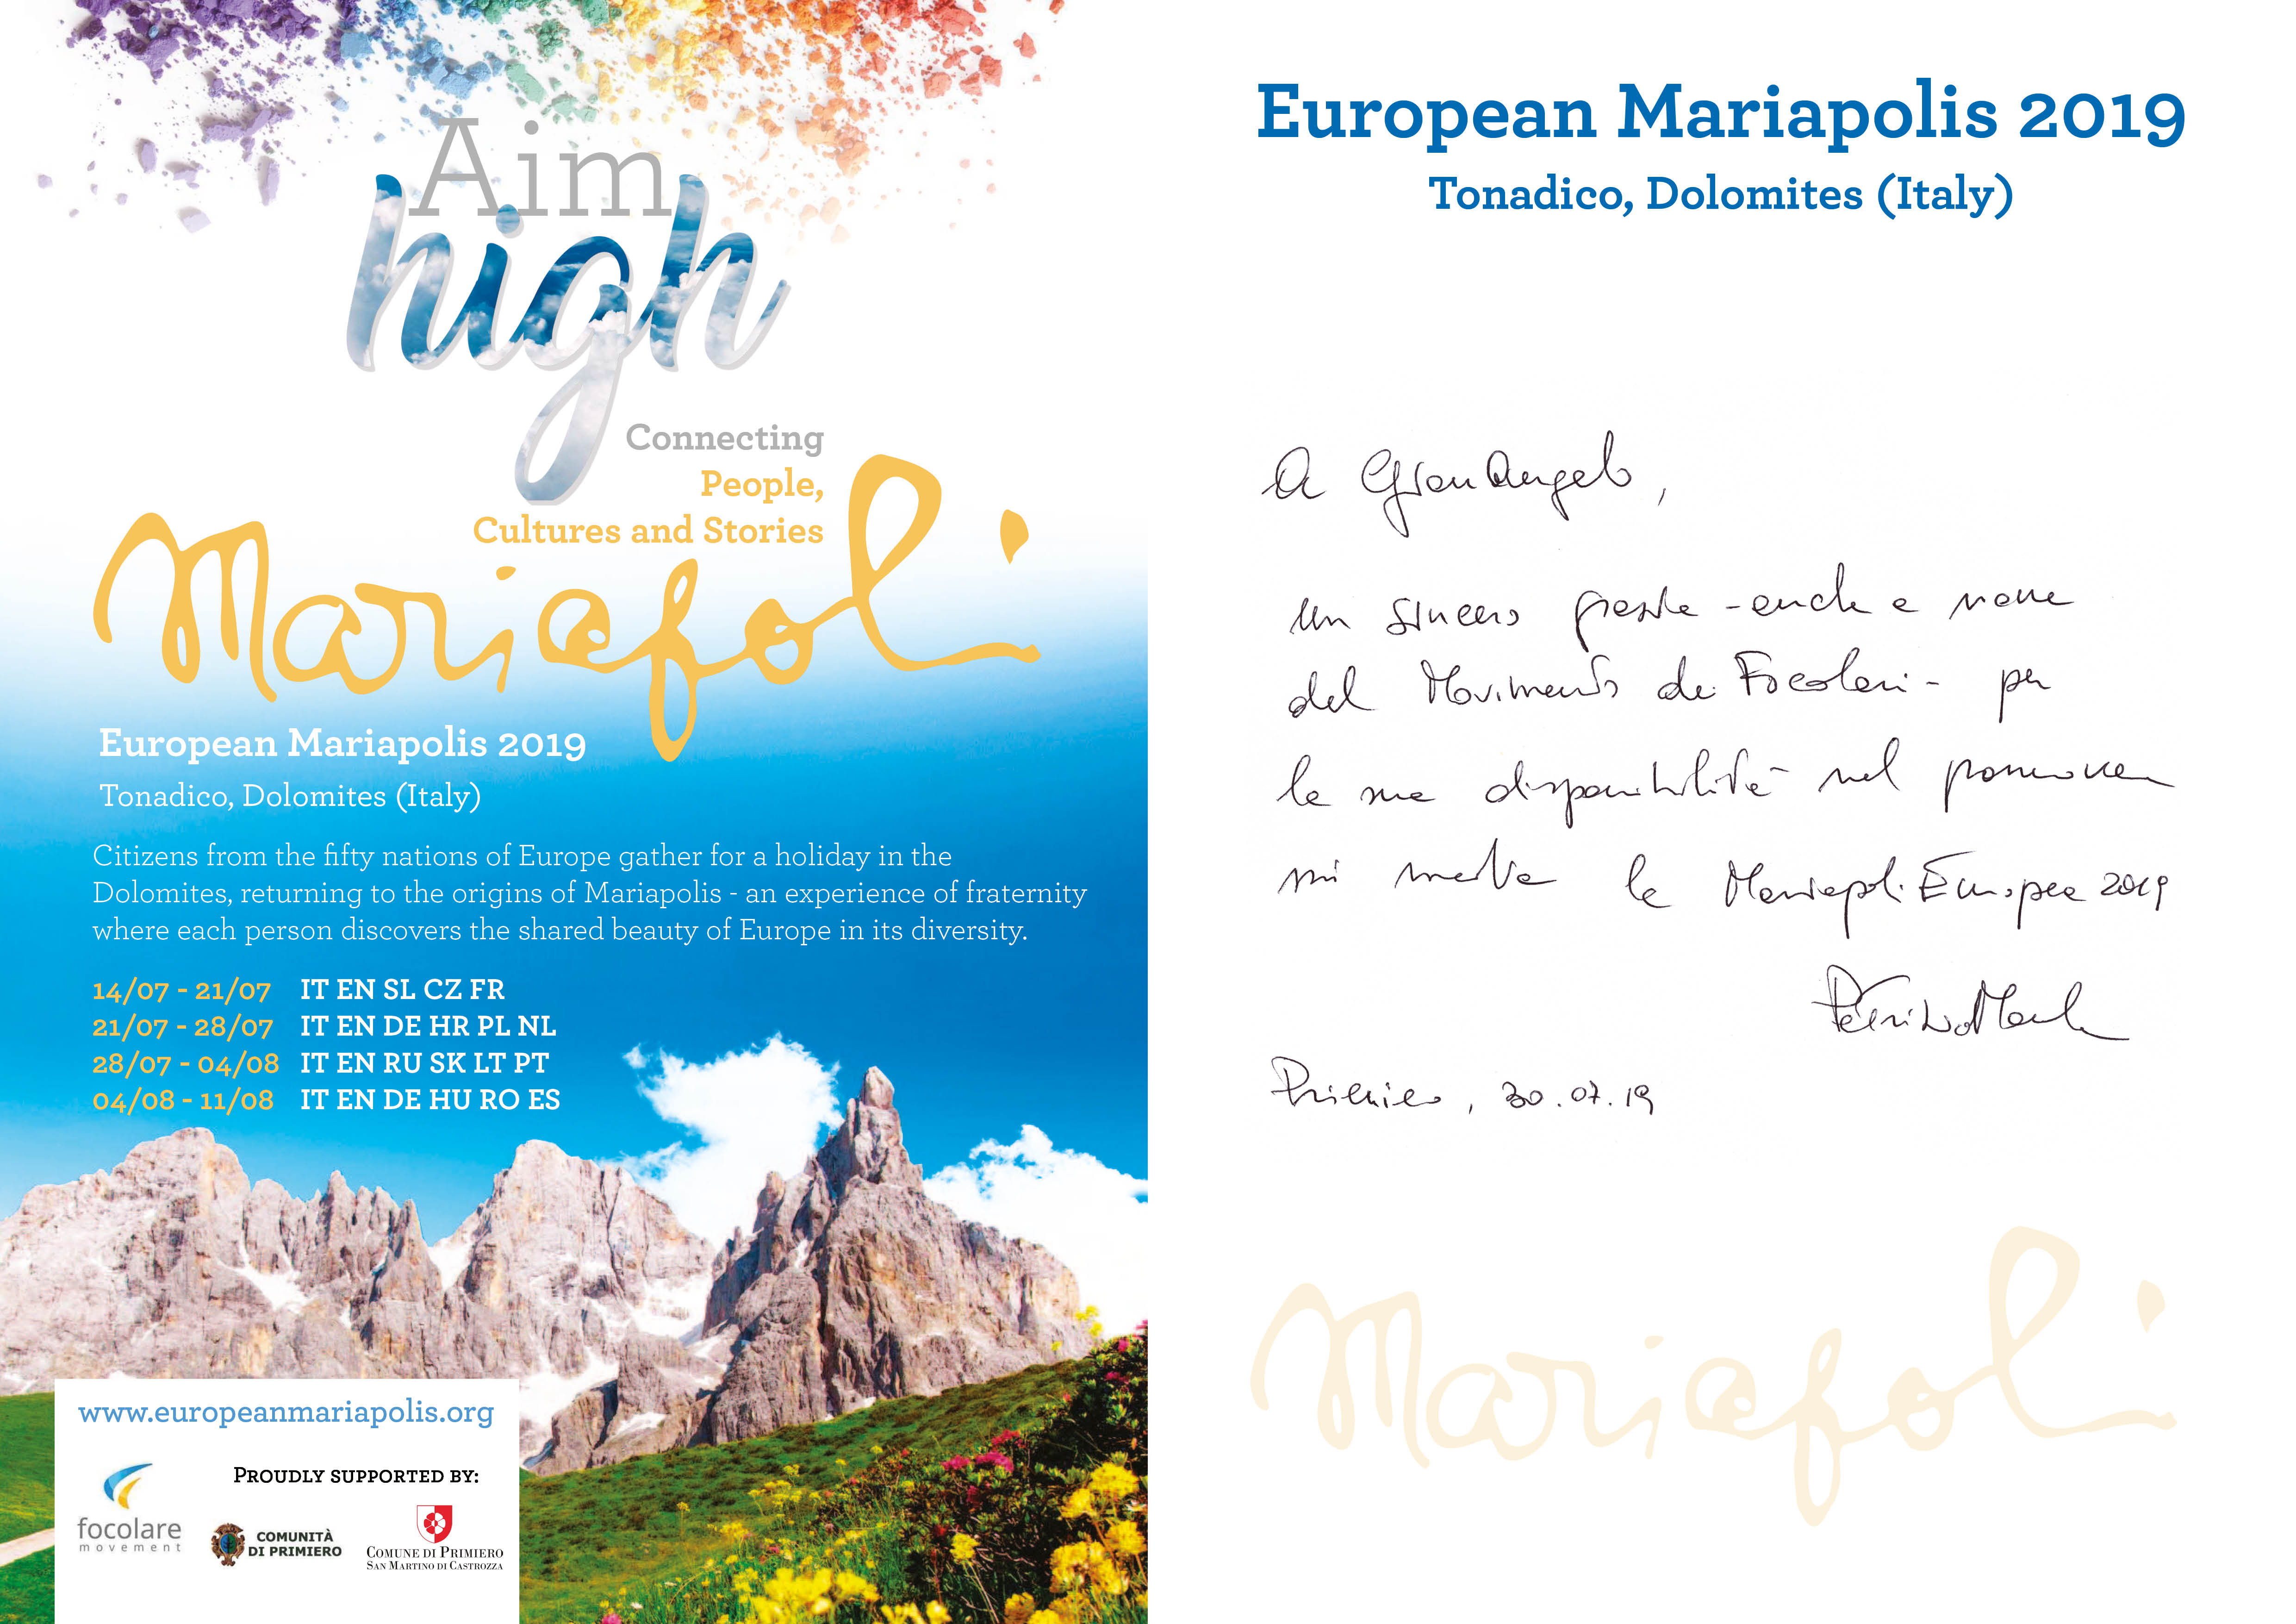 Aim
high
Connecting
People,
Cultures and Stories
Mariapoli
European Mariapolis 2019
Tonadico, Dolomites (Italy)
Citizens from the fifty nations of Europe gather for a holiday in the
Dolomites, returning to the origins of Mariapolis - an experience of fraternity
where each person discovers the shared beauty of Europe in its diversity.
14/07 - 21/07 IT EN SL CZ FR
21/07 - 28/07 IT EN DE HR PL NL
28/07 - 04/08 IT EN RU SK LT PT
04/08 - 11/08 IT EN DE HU RO ES
www.europeanmariapolis.org
PROUDLY SUPPORTED BY:
focolare
movement
COMUNITÀ
DI PRIMIERO
COMUNE DI PRIMIERO
SAN MARTINO DI CASTROZZA
European Mariapolis 2019
Tonadico, Dolomites (Italy)
A GranAngolo,
un sincero grazie - anche a nome
del Movimento dei Focolari - per
la sua disponibilità nel promuovere
la Mariapoli Europea 2019
Primiero, 30.07.19
Mariapoli